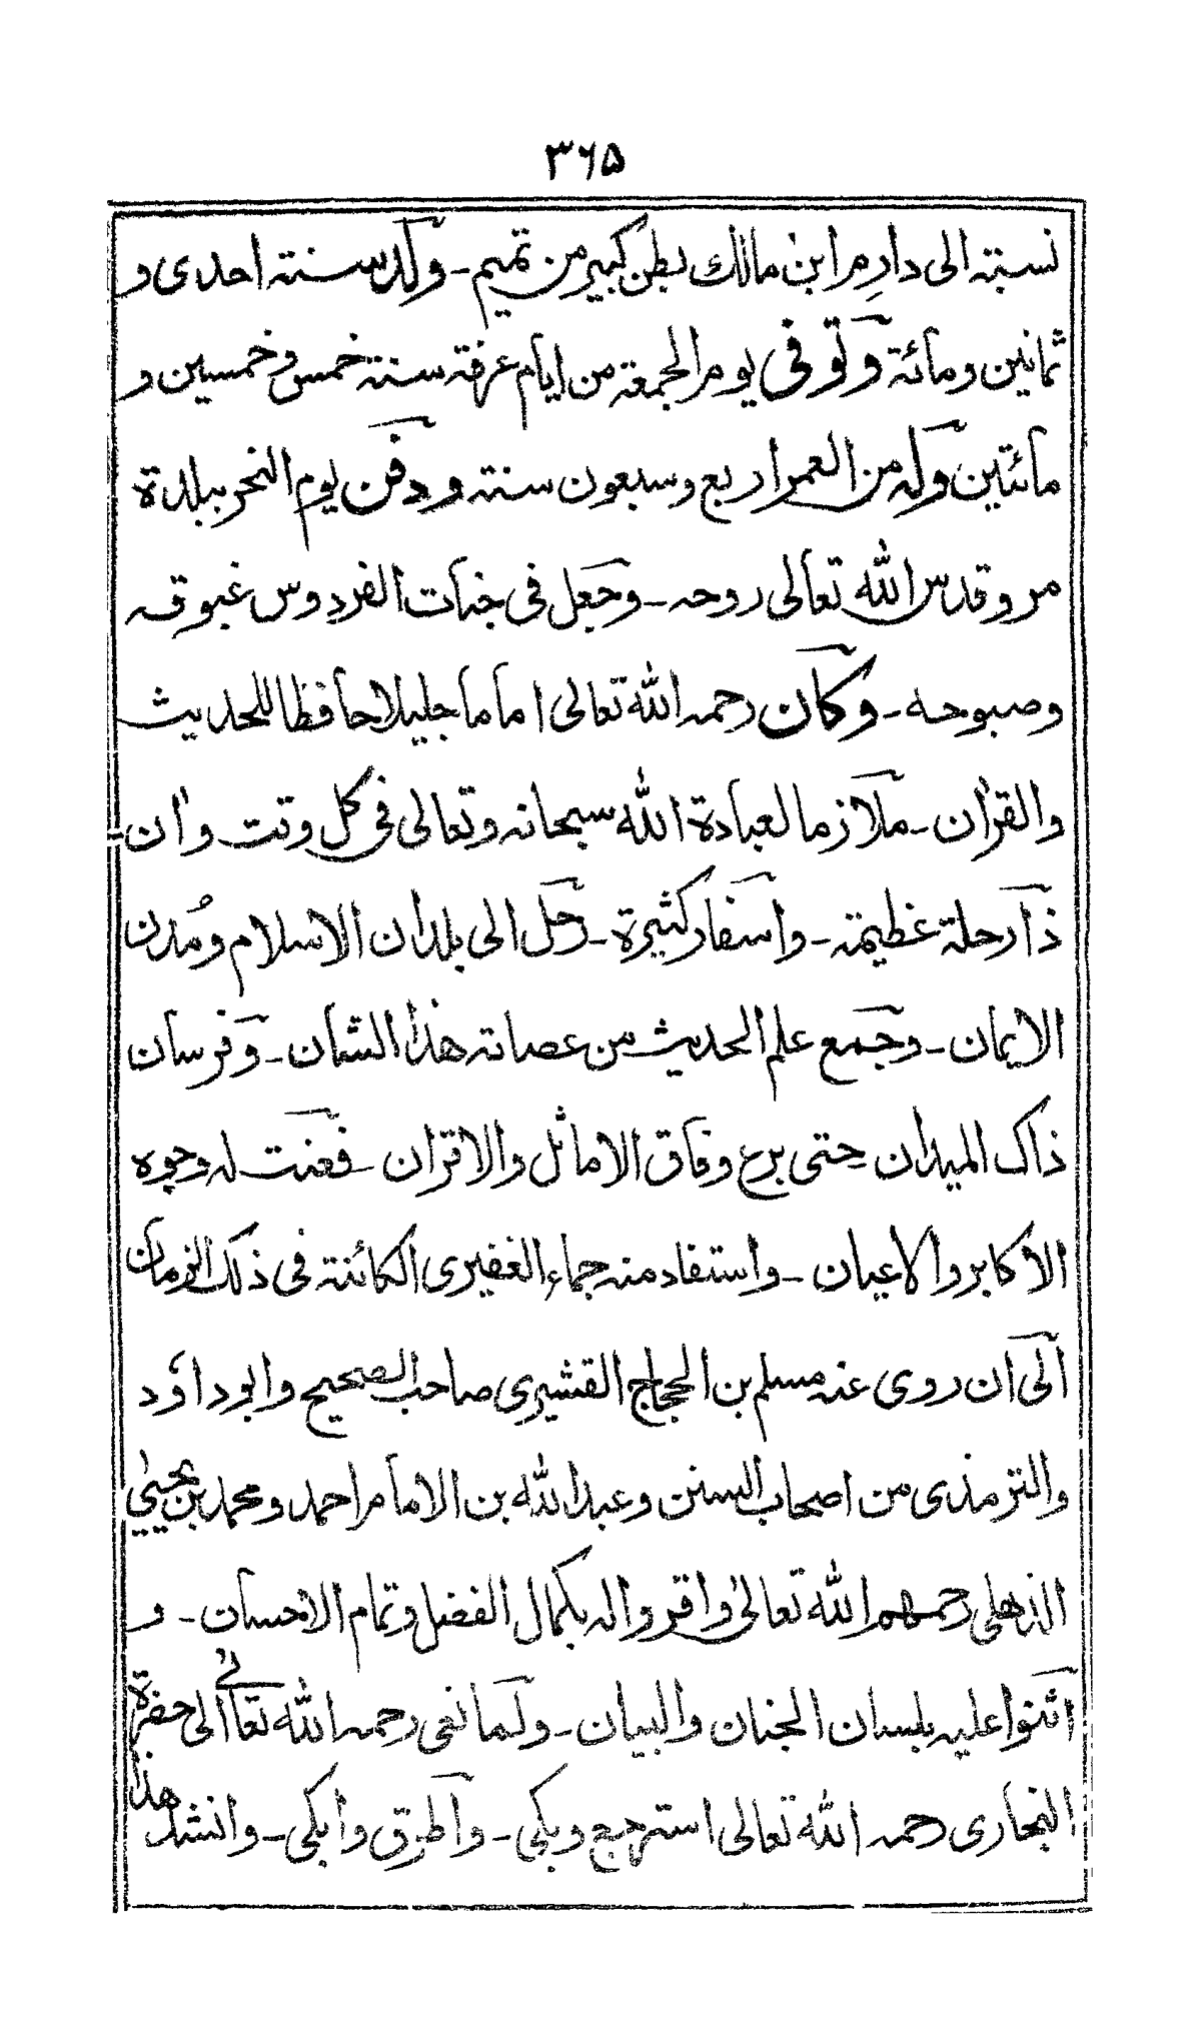 ۳۶۵
نسبتہ الی دارِم ابن مالک بطن کبیر من تمیم ۔ وُلد سنتہ احدی و
ثمانین ومائۃ وتوفی یوم الجمعۃ من ایام عرفۃ سنتہ خمس وخمسین و
مائتین ولہ من العمر اربع وسبعون سنتہ ودفن یوم النحر ببلدۃ
مرو قدس اللہ تعالی روحہ ۔ وجعل فی جنات الفردوس غبوقہ
وصبوحہ ۔ وکان رحمہ اللہ تعالی اماما جلیلا حافظا للحدیث
والقرٰان ۔ ملازما لعبادۃ اللہ سبحانہ وتعالی فی کل وقت وٰان ۔
ذا رحلۃ عظیمۃ ۔ واسفار کثیرۃ ۔ رحل الی بلدان الاسلام ومُدن
الایمان ۔ وجمع علم الحدیث من عصاتہ ھذا الشان ۔ وفرسان
ذاک المیدان حتی برع وفاق الاماثل والاقران ۔ فعنت لہ وجوہ
الاکابر والاعیان ۔ واستفاد منہ جماء الغفیری الکائنۃ فی ذلک الزمان
الی ان روی عنہ مسلم بن الحجاج القشیری صاحب الصحیح وابوداؤد
والترمذی من اصحاب السنن وعبد اللہ بن الامام احمد ومحمد بن یحییٰ
الذھلی رحمھم اللہ تعالیٰ واقروا لہ بکمال الفضل وتمام الاحسان ۔ و
اثنوا علیہ بلسان الجنان والبیان ۔ ولما نعی رحمہ اللہ تعالی الی حضرۃ
البخاری رحمہ اللہ تعالی استرجع وبکی ۔ واطرق وابکی ۔ وانشد ھذا